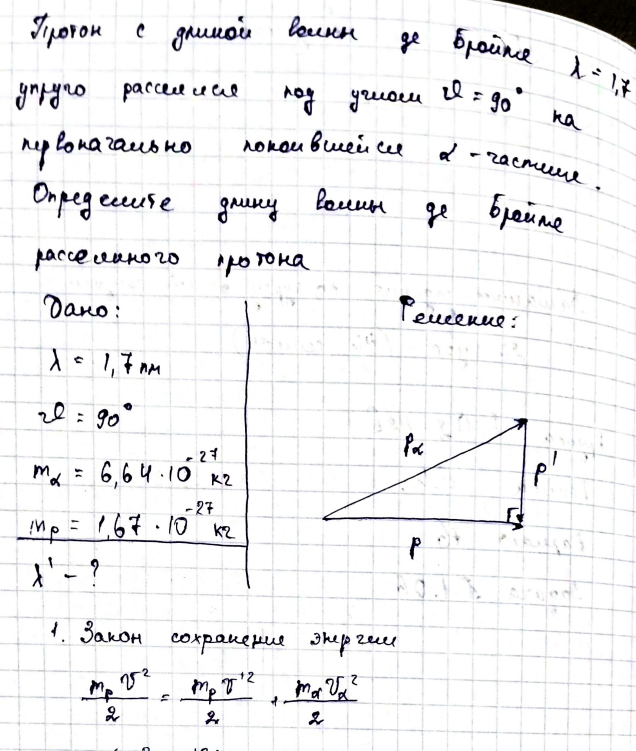 Протон с длиной волны де Бройля λ = 1,7
упруго рассеялся под углом ϑ = 90° на
первоначально покоившейся α - частице.
Определите длину волны де Бройля
рассеянного протона
Дано:
Решение:
λ = 1,7 пм
ϑ = 90°
mα = 6,64 · 10⁻²⁷ кг
mp = 1,67 · 10⁻²⁷ кг
λ' - ?
pα
p'
p
1. Закон сохранения энергии
mp v²/2 = mp v'²/2 + mα vα²/2